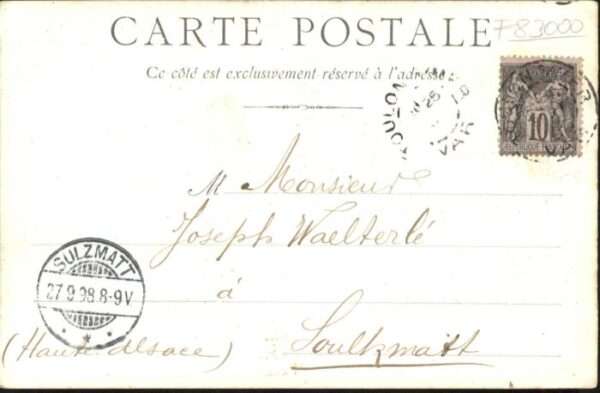 F83000
CARTE POSTALE
Ce côté est exclusivement réservé à l'adresse.
TOULON
VAR
10
M Monsieur
Joseph Waelterlé
à
Soulkmatt
(Haute Alsace)
SULZMATT
27.9.98.8-9V